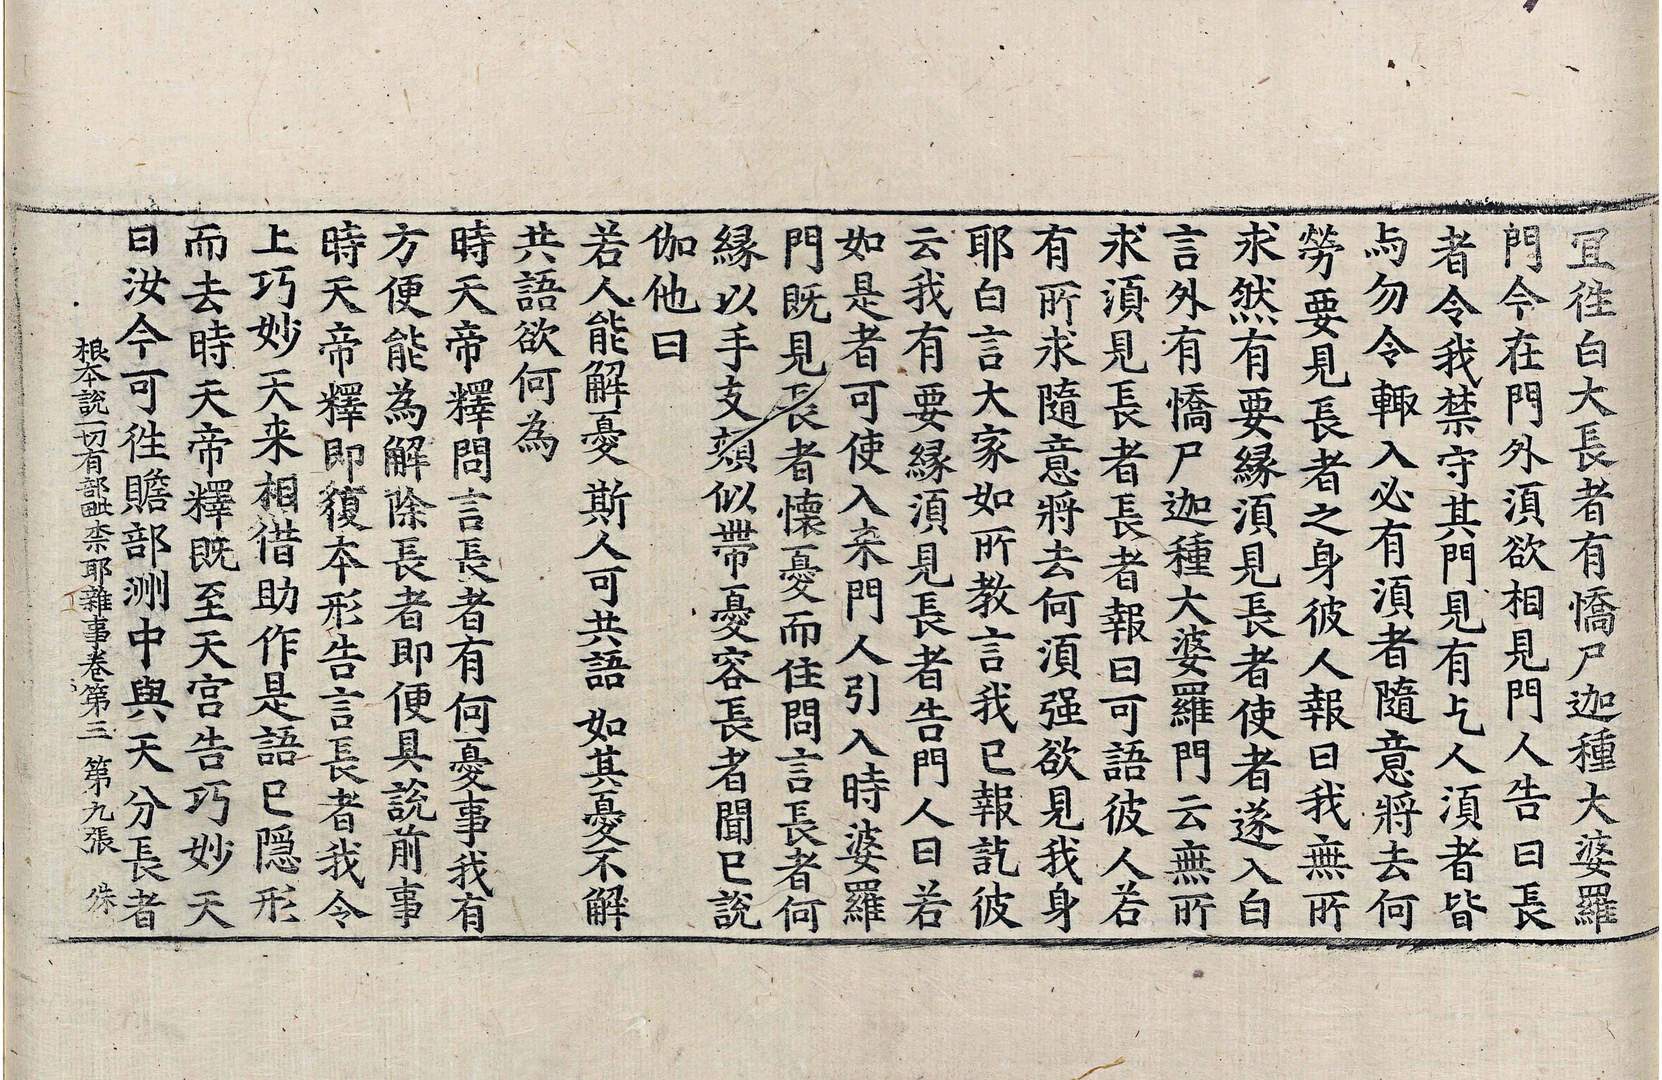 冝徃白大長者有憍尸迦種大婆羅
門今在門外湏欲相見門人告曰長
者令我禁守其門見有乞人湏者皆
与勿令輙入必有湏者隨意將去何
勞要見長者之身彼人報曰我無所
求然有要縁湏見長者使者遂入白
言外有憍尸迦種大婆羅門云無所
求湏見長者長者報曰可語彼人若
有所求隨意將去何湏强欲見我身
耶白言大家如所教言我已報訖彼
云我有要縁湏見長者告門人曰若
如是者可使入来門人引入時婆羅
門既見長者懷憂而住問言長者何
縁以手支頰似帶憂容長者聞已說
伽他曰
若人能解憂 斯人可共語 如其憂不解
共語欲何為
時天帝釋問言長者有何憂事我有
方便能為解除長者即便具說前事
時天帝釋即復本形告言長者我令
上巧妙天来相借助作是語已隠形
而去時天帝釋既至天宫告巧妙天
曰汝今可徃贍部洲中與天分長者
根本說一切有部毗柰耶雜事卷第三 第九張 侏